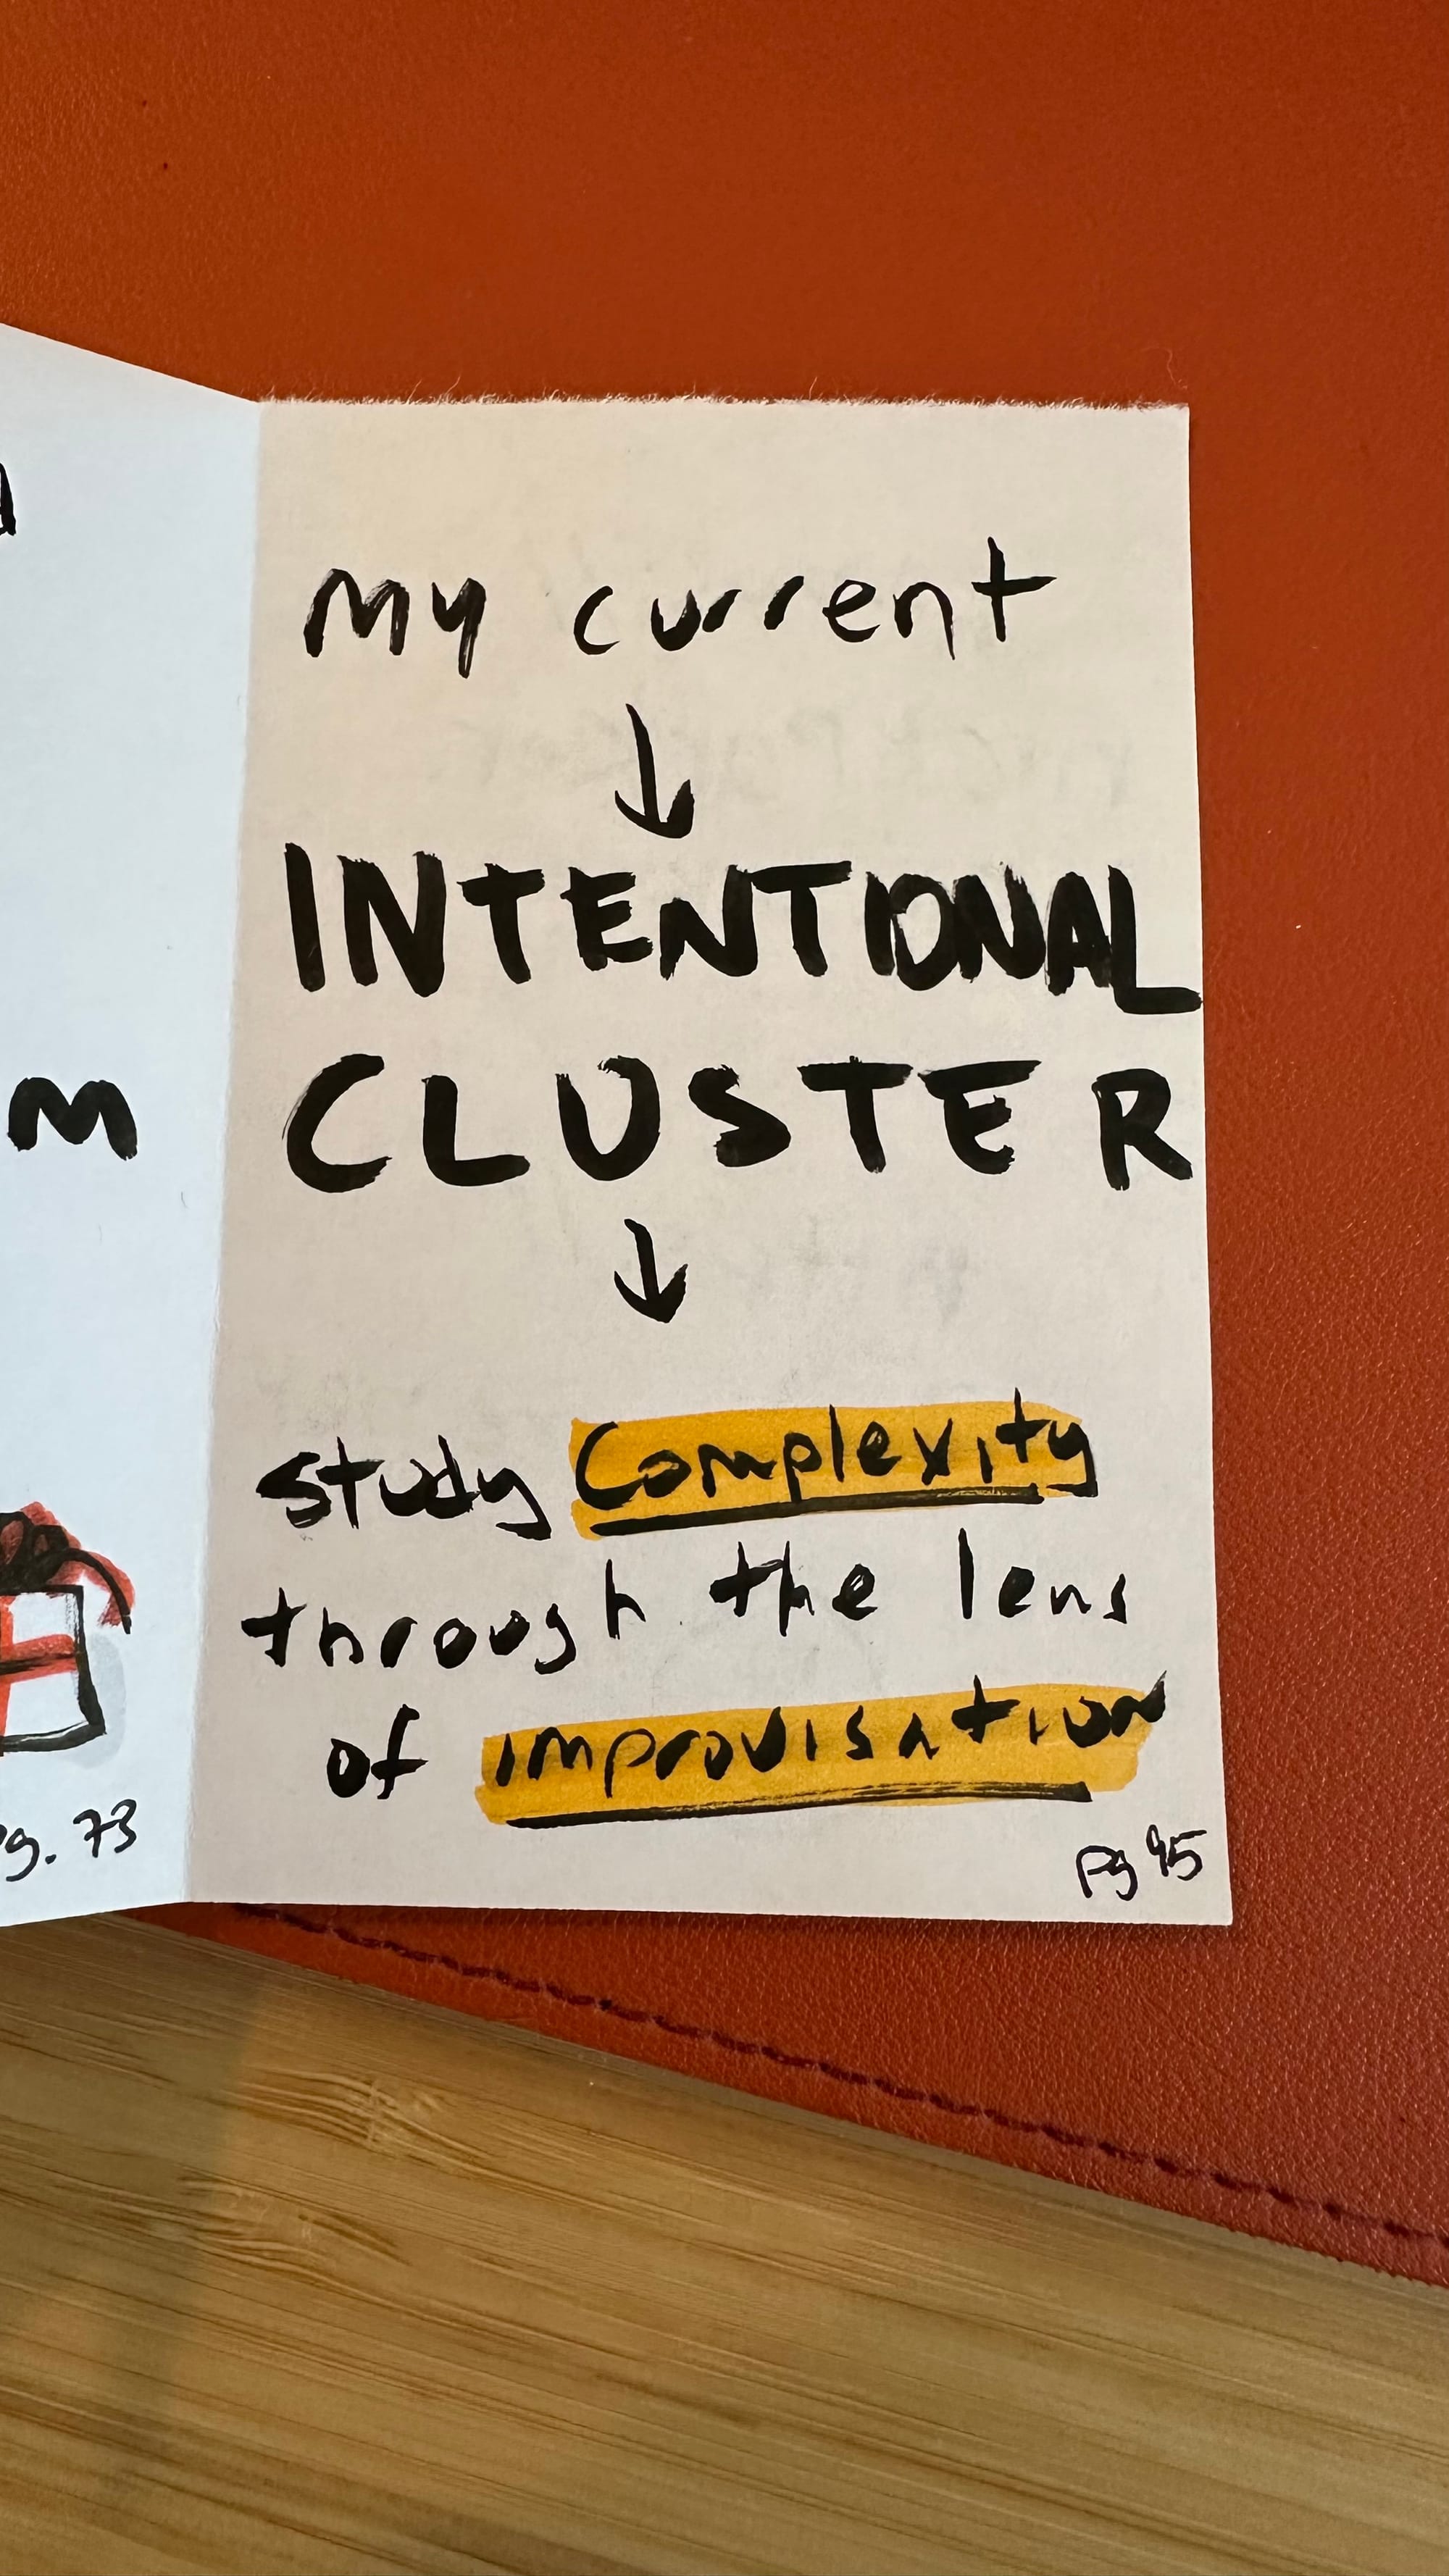 M
pg. 73
my current
↓
INTENTIONAL
CLUSTER
↓
study Complexity
through the lens
of improvisation
Pg 95